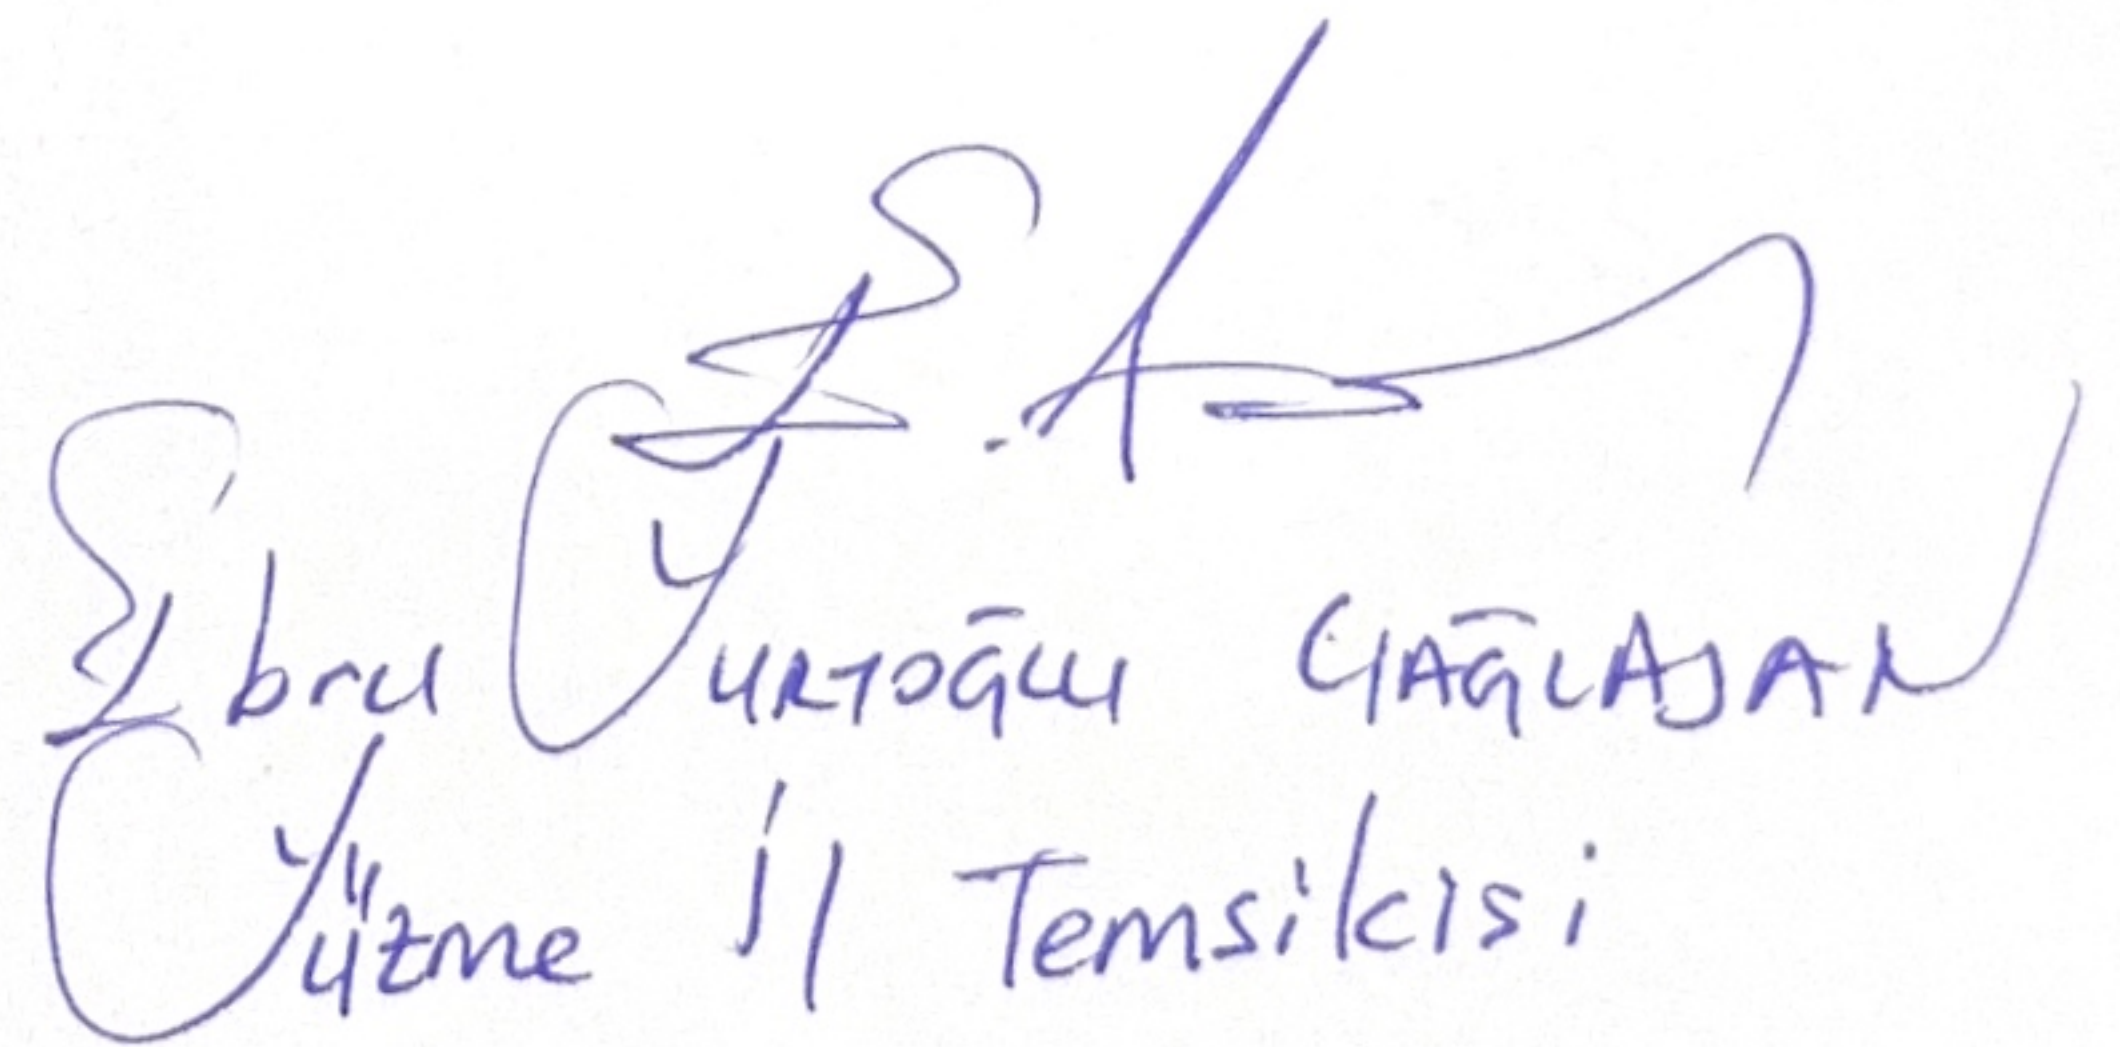 Ebru YURTOĞLU ÇAĞLAJAN
Yüzme İl Temsilcisi